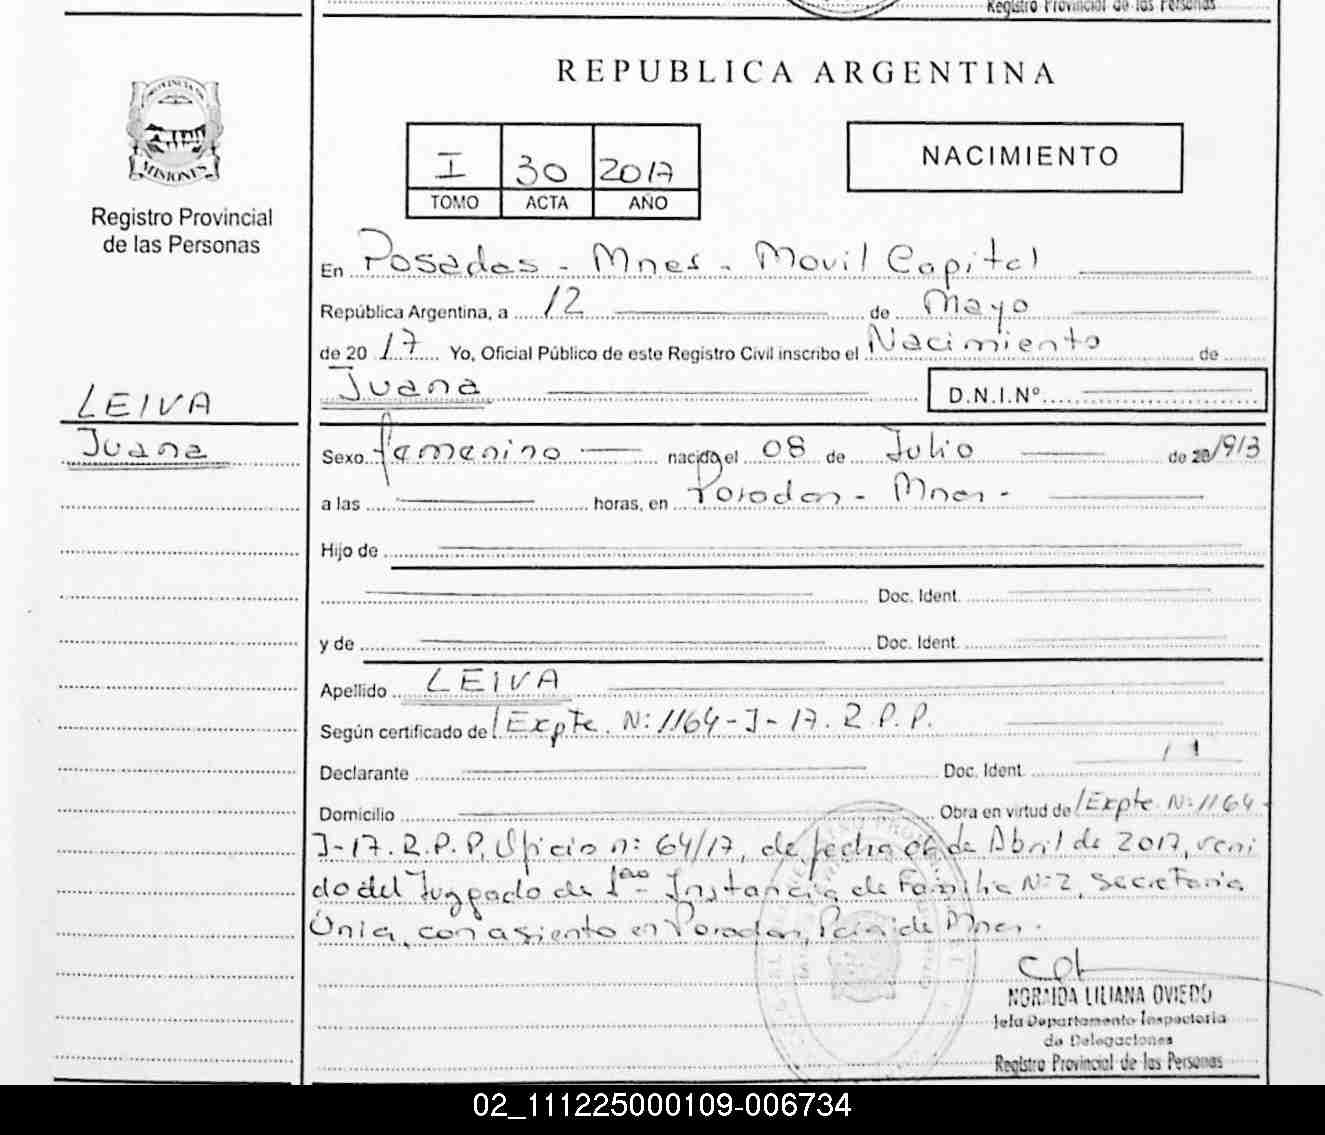 Registro Provincial de las Personas
PROVINCIA DE
MISIONES
Registro Provincial
de las Personas
LEIVA
Juana
REPUBLICA ARGENTINA
I 30 2017
TOMO ACTA AÑO
NACIMIENTO
En Posadas - Mnes - Movil Capital
República Argentina, a 12 de Mayo
de 20 17 Yo, Oficial Público de este Registro Civil inscribo el Nacimiento de
Juana D.N.I.Nº
Sexo femenino nacida el 08 de Julio de 1913
a las horas, en Posadas - Mnes -
Hijo de
Doc. Ident.
y de Doc. Ident.
Apellido LEIVA
Según certificado de /Expte. Nº: 1164-J-17. R.P.P.
Declarante Doc. Ident.
Domicilio Obra en virtud de /Expte. Nº: 1164-
J-17. R.P.P. Oficio nº: 64/17, de fecha 06 de Abril de 2017, veni
do del Juzgado de 1ra Instancia de Familia Nº 2, Secretaria
Única, con asiento en Posadas, Pcia de Mnes.
NORAIDA LILIANA OVIEDO
Jefa Departamento Inspectoria
de Delegaciones
Registro Provincial de las Personas
02_111225000109-006734